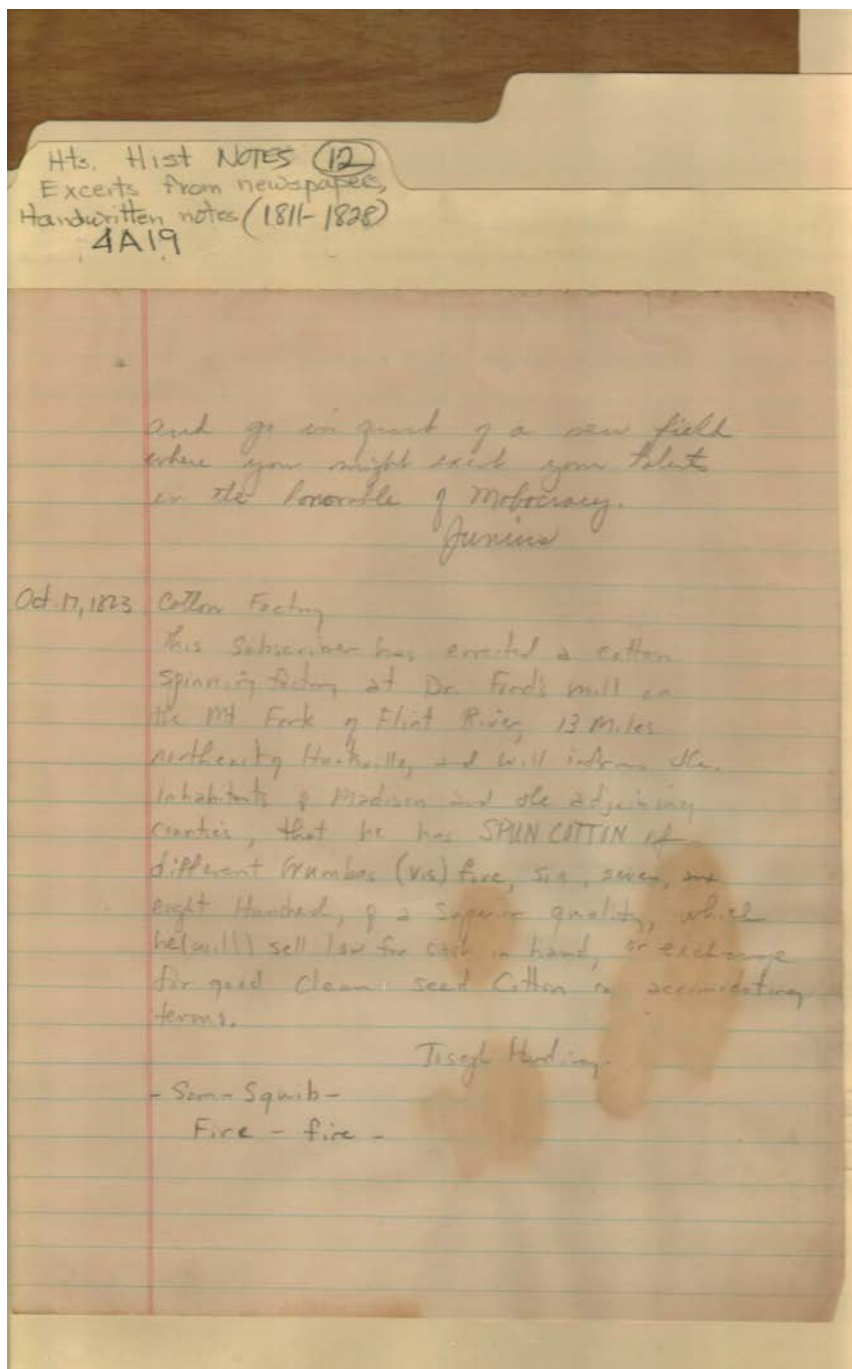 Hts. Hist NOTES (12)
Excerts from newspapers,
Handwritten notes (1811-1828)
4A19
and go in quest of a new field
where you might exert your talents
in the honorable of Mobocracy.
Junius
Oct. 17, 1823 Cotton Factory
This Subscriber has errected a cotton
spinning factory at Dr. Ford's mill on
the Mt Fork of Flint River, 13 miles
of Huntsville, and will inform the
inhabitants of Madison and the adjoining
counties, that he has SPUN COTTON of
different (vis) five, six, seven, and
eight Hundred, of a Superior quality, which
he (will) sell low for cash in hand, or exchange
for good clean seed Cotton on accomodating
terms.
Joseph
- Sam - Squib -
Fire - fire -